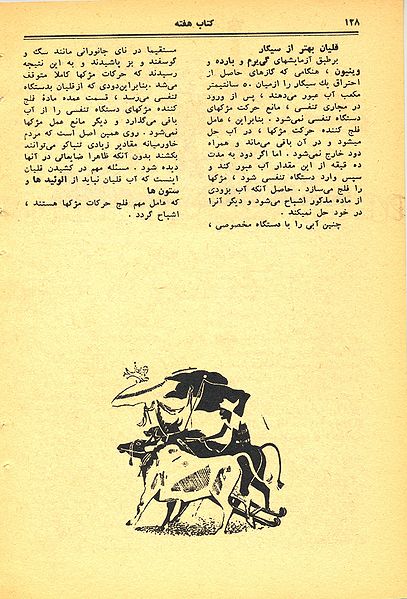 ۱۲۸
کتاب هفته
قلیان بهتر از سیگار
برطبق آزمایشهای گی‌یرم و بارده و
وینیون ، هنگامی که گازهای حاصل از
احتراق یك سیگار را ازمیان ۵۰ سانتیمتر
مکعب آب عبور می‌دهند ، پس از ورود
در مجاری تنفسی ، مانع حرکت مژکهای
دستگاه تنفسی نمی‌شود . بنابراین ، عامل
فلج کننده حرکت مژکها ، در آب حل
میشود و در آن باقی می‌ماند و همراه
دود خارج نمی‌شود . اما اگر دود به مدت
ده دقیقه از این مقدار آب عبور کند و
سپس وارد دستگاه تنفسی شود ، مژکها
را فلج می‌سازد . حاصل آنکه آب بزودی
از ماده مذکور اشباح می‌شود و دیگر آنرا
در خود حل نمیکند .
چنین آبی را با دستگاه مخصوصی ،
مستقیما در نای جانورانی مانند سگ و
گوسفند و بز پاشیدند و به این نتیجه
رسیدند که حرکات مژکها کاملا متوقف
می‌شد . بنابراین‌دودی که ازقلیان بدستگاه
تنفسی می‌رسد ، قسمت عمده مادهٔ فلج
کننده مژکهای دستگاه تنفسی را از آب
باقی می‌گذارد و دیگر مانع عمل مژکها
نمی‌شود . روی همین اصل است که مردم
خاورمیانه مقادیر زیادی تنباکو می‌توانند
بکشند بدون آنکه ظاهرا ضایعاتی در آنها
دیده شود . مسئله مهم در کشیدن قلیان
اینست که آب قلیان نباید از آلوئید ها و
ستون ها
که عامل مهم فلج حرکات مژکها هستند ،
اشباح گردد .